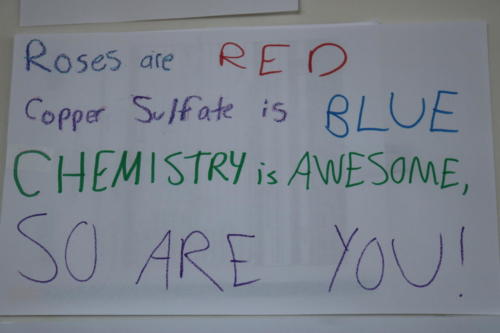 Roses are RED
Copper Sulfate is BLUE
CHEMISTRY is AWESOME,
SO ARE YOU!